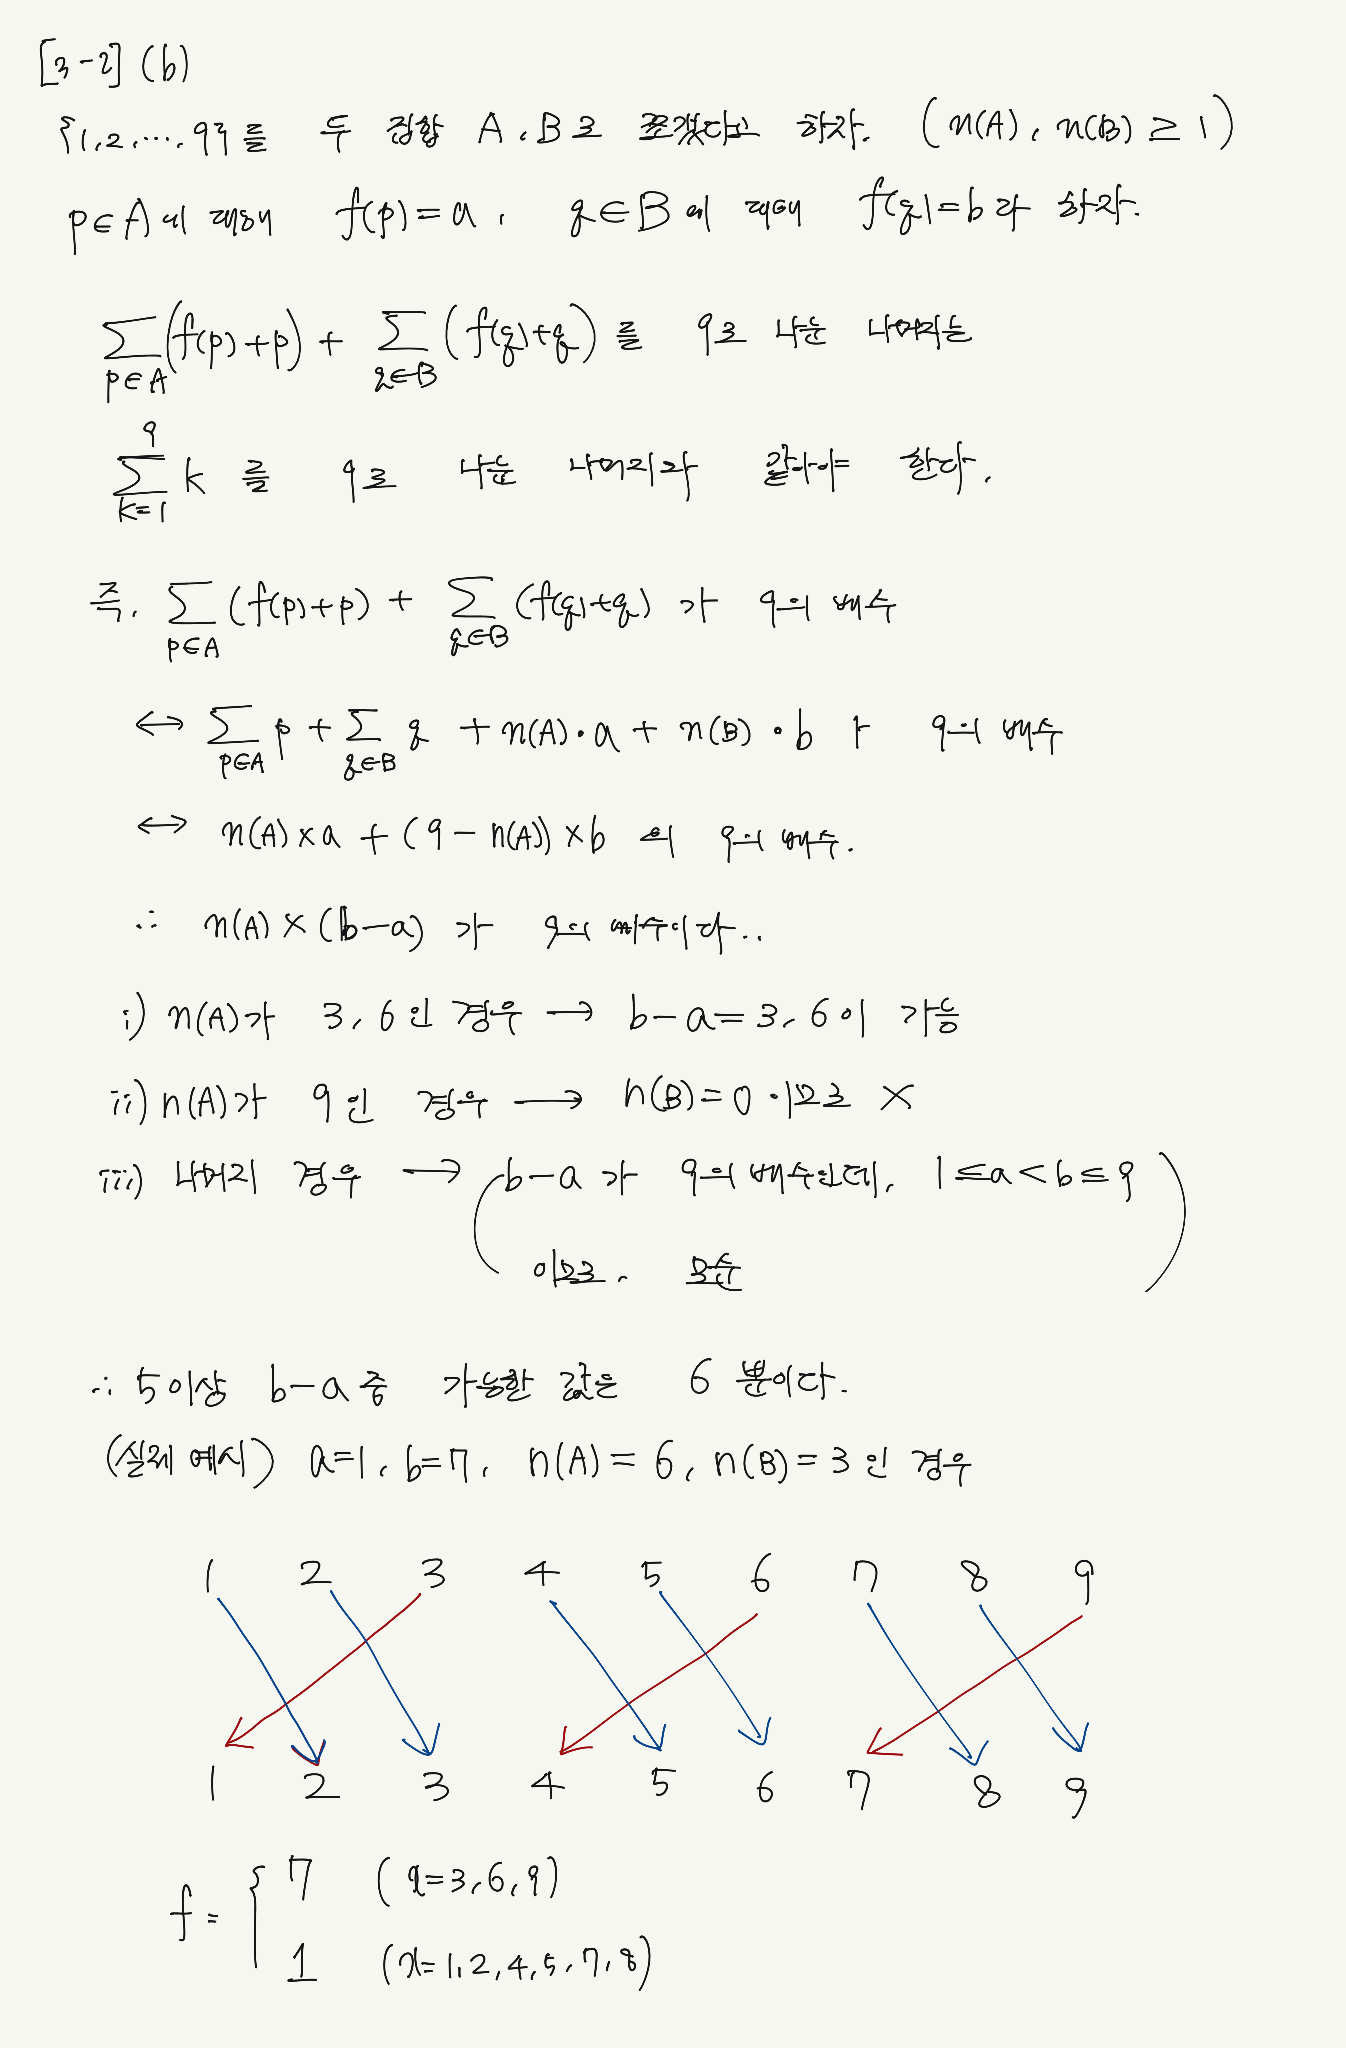 [3-2] (b)
{1, 2, ..., 9}를 두 집합 A, B로 쪼갰다고 하자. (n(A), n(B) ≥ 1)
p∈A에 대해 f(p)=a, q∈B에 대해 f(q)=b라 하자.
∑_{p∈A} (f(p)+p) + ∑_{q∈B} (f(q)+q) 를 9로 나눈 나머지는
∑_{k=1}^{9} k 를 9로 나눈 나머지와 같아야 한다.
즉, ∑_{p∈A} (f(p)+p) + ∑_{q∈B} (f(q)+q) 가 9의 배수
↔ ∑_{p∈A} p + ∑_{q∈B} q + n(A)·a + n(B)·b 가 9의 배수
↔ n(A)×a + (9-n(A))×b 의 9의 배수.
∴ n(A)×(b-a) 가 9의 배수이다..
i) n(A)가 3, 6인 경우 → b-a=3, 6이 가능
ii) n(A)가 9인 경우 → n(B)=0이므로 ×
iii) 나머지 경우 → (b-a가 9의 배수인데, 1≤a<b≤9
이므로, 모순)
∴ 5이상 b-a 중 가능한 값은 6 뿐이다.
(실제 예시) a=1, b=7, n(A)=6, n(B)=3인 경우
1 2 3 4 5 6 7 8 9
1 2 3 4 5 6 7 8 9
f = { 7 (x=3, 6, 9)
1 (x=1, 2, 4, 5, 7, 8)